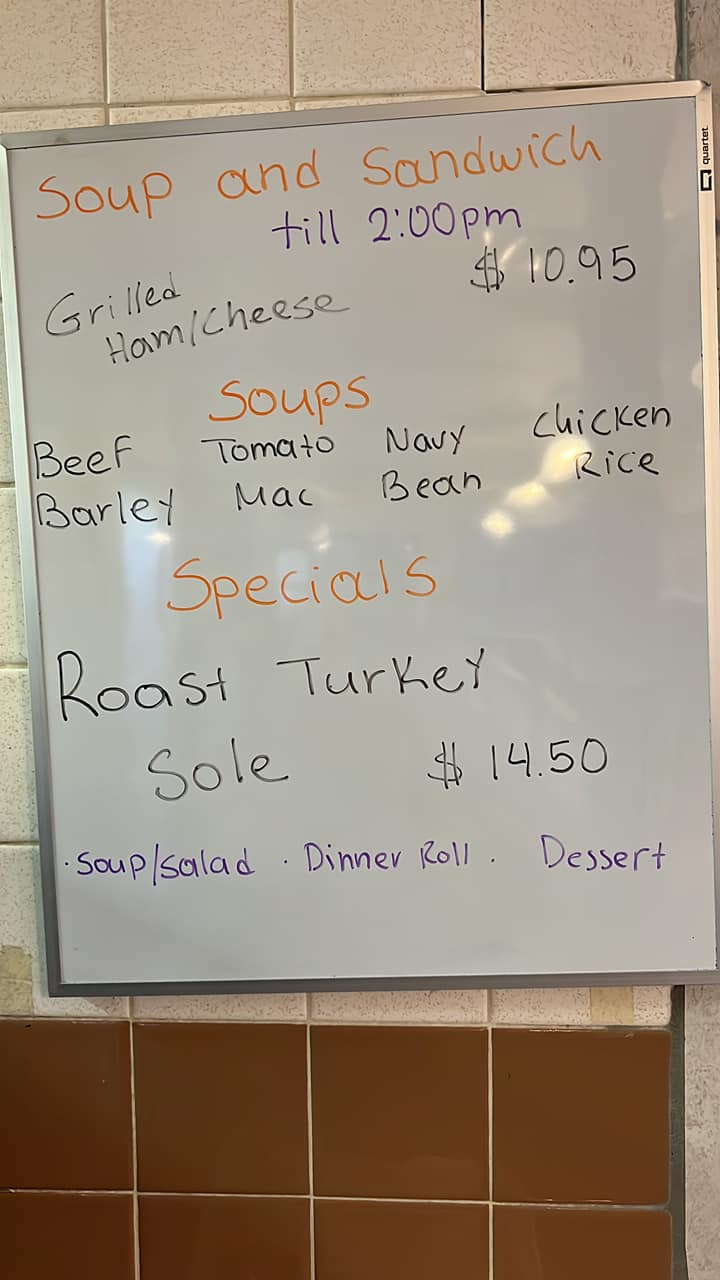 quartet
Soup and Sandwich
till 2:00pm
$ 10.95
Grilled
Ham/Cheese
Soups
Beef Tomato Navy Chicken
Barley Mac Bean Rice
Specials
Roast Turkey
Sole $ 14.50
· Soup/Salad · Dinner Roll . Dessert